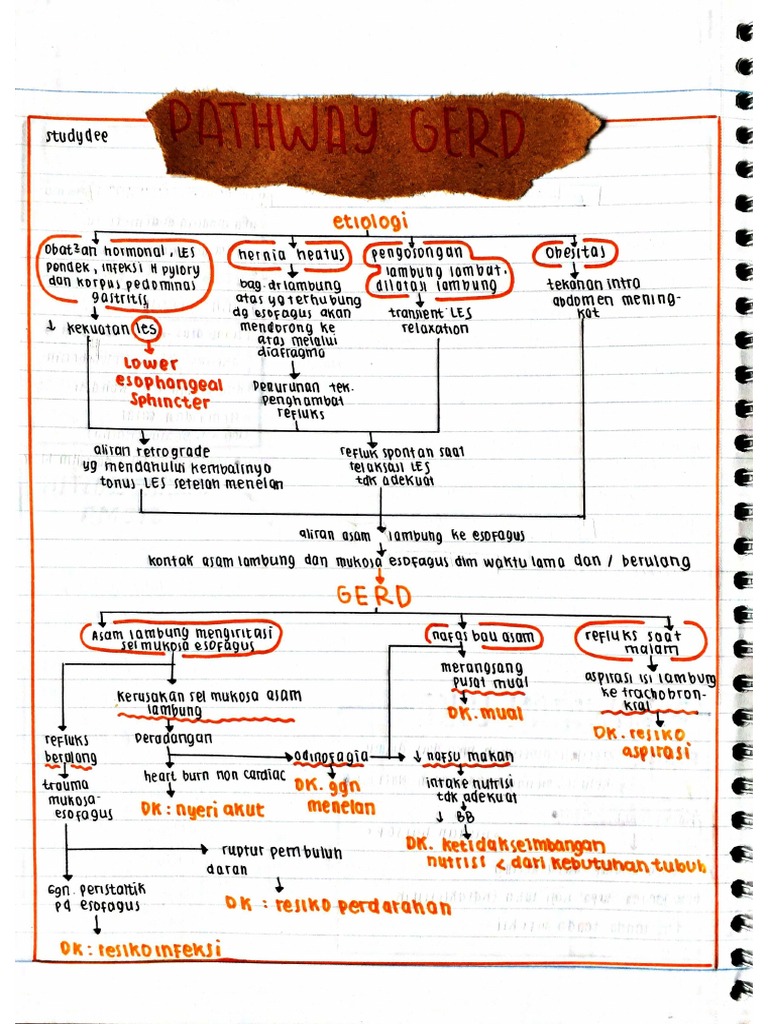 PATHWAY GERD
studydee
etiologi
Obat2an hormonal, LES
pendek, infeksi H pylory
dan korpus pedominas
gastritis
hernia heatus
pengosongan
lambung lambat,
dilatasi lambung
Obesitas
↓ kekuatan les
Lower
esophangeal
Sphincter
bag. dr lambung
atas yg terhubung
dg esofagus akan
mendorong ke
atas melalui
diafragma
transient LES
relaxation
tekanan intra
abdomen mening-
kat
penurunan tek.
penghambat
refluks
aliran retrograde
yg mendahului kembalinya
tonus LES setelah menelan
refluk spontan saat
relaksasi LES
tdk adekuat
aliran asam lambung ke esofagus
kontak asam lambung dan mukosa esofagus dlm waktu lama dan / berulang
GERD
Asam lambung mengiritasi
sel mukosa esofagus
nafas bau asam
refluks saat
malam
kerusakan sel mukosa asam
lambung
merangsang
pusat mual
DK. mual
aspirasi isi lambung
ke trachobron-
krial
DK. resiko
aspirasi
refluks
berulang
peradangan
trauma
mukosa-
esofagus
heart burn non cardiac
DK : nyeri akut
odinofagia
DK. ggn
menelan
↓ nafsu makan
intake nutrisi
tdk adekuat
↓ BB
DK. ketidakseimbangan
nutrisi < dari kebutuhan tubuh
ruptur pembuluh
daran
DK : resiko perdarahan
ggn. peristaltik
pd esofagus
DK : resiko infeksi